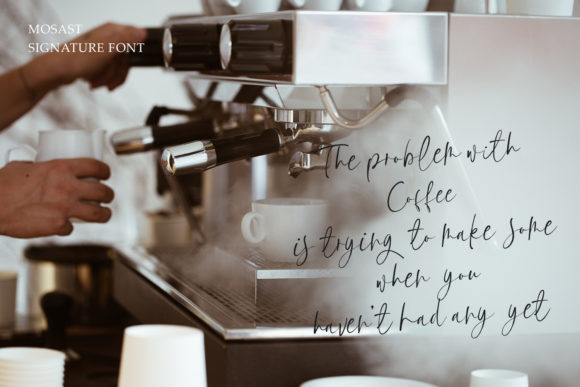 MOSAST
SIGNATURE FONT
The problem with
Coffee
is trying to make some
when you
haven't had any yet